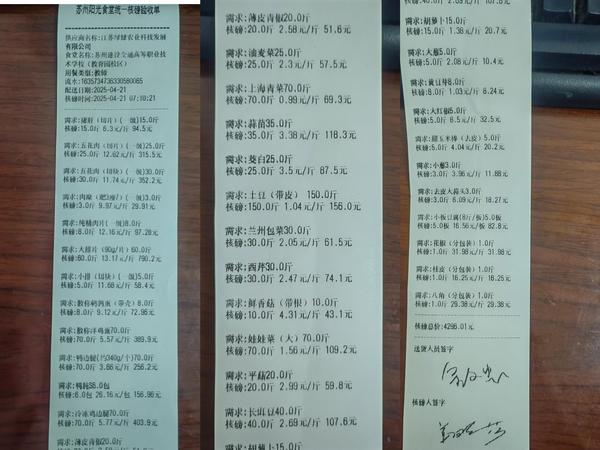 苏州阳光食堂统一核磅验收单
供应商名称:江苏绿健农业科技发展
有限公司
食堂名称:苏州建设交通高等职业技
术学校（教育园校区）
用餐类型:教师
流水:1635734736330580065
配送日期:2025-04-21
核磅时间:2025-04-21 07:10:21
需求:猪肝（切片）(一级)15.0斤
核磅:15.0斤 6.3元/斤 94.5元
需求:五花肉（切片）(一级)25.0斤
核磅:25.0斤 12.62元/斤 315.5元
需求:五花肉（切块）(一级)30.0斤
核磅:30.0斤 11.74元/斤 352.2元
核磅:3.0斤 9.97元/斤 29.91元
需求:纯精肉片(一级)8.0斤
核磅:8.0斤 12.16元/斤 97.28元
需求:大排片（90g/片）60.0斤
核磅:60.0斤 13.17元/斤 790.2元
需求:小排（切块）(一级)5.0斤
核磅:5.0斤 11.68元/斤 58.4元
需求:散称鹌鹑蛋（带壳）8.0斤
核磅:8.0斤 9.12元/斤 72.96元
需求:散称洋鸡蛋70.0斤
核磅:70.0斤 5.57元/斤 389.9元
需求:鸭边腿(约340g/个)70.0斤
核磅:70.0斤 3.66元/斤 256.2元
核磅:6.0包 26.16元/包 156.96元
需求:冷冻鸡边腿70.0斤
核磅:70.0斤 5.77元/斤 403.9元
需求:薄皮青椒20.0斤
需求:薄皮青椒20.0斤
核磅:20.0斤 2.58元/斤 51.6元
需求:油麦菜25.0斤
核磅:25.0斤 2.3元/斤 57.5元
需求:上海青菜70.0斤
核磅:70.0斤 0.99元/斤 69.3元
需求:蒜苗35.0斤
核磅:35.0斤 3.38元/斤 118.3元
需求:茭白25.0斤
核磅:25.0斤 3.5元/斤 87.5元
需求:土豆（带皮）150.0斤
核磅:150.0斤 1.04元/斤 156.0元
需求:兰州包菜30.0斤
核磅:30.0斤 2.05元/斤 61.5元
需求:西芹30.0斤
核磅:30.0斤 2.47元/斤 74.1元
需求:鲜香菇（带根）10.0斤
核磅:10.0斤 4.31元/斤 43.1元
需求:娃娃菜（大）70.0斤
核磅:70.0斤 1.56元/斤 109.2元
需求:平菇20.0斤
核磅:20.0斤 2.99元/斤 59.8元
需求:长豇豆40.0斤
核磅:40.0斤 2.69元/斤 107.6元
需求:胡萝卜15.0斤
核磅:40.0斤 2.69元/斤 107.6元
需求:胡萝卜15.0斤
核磅:15.0斤 1.38元/斤 20.7元
需求:大葱5.0斤
核磅:5.0斤 2.08元/斤 10.4元
需求:黄豆芽8.0斤
核磅:8.0斤 1.03元/斤 8.24元
需求:大红椒5.0斤
核磅:5.0斤 6.5元/斤 32.5元
需求:甜玉米棒（去皮）5.0斤
核磅:5.0斤 4.04元/斤 20.2元
需求:小葱3.0斤
核磅:3.0斤 3.96元/斤 11.88元
需求:去皮大蒜头3.0斤
核磅:3.0斤 6.09元/斤 18.27元
需求:小板豆腐(8斤/板)5.0板
核磅:5.0板 16.56元/板 82.8元
需求:花椒（分包装）1.0斤
核磅:1.0斤 31.98元/斤 31.98元
需求:桂皮（分包装）1.0斤
核磅:1.0斤 16.25元/斤 16.25元
需求:八角（分包装）1.0斤
核磅:1.0斤 29.38元/斤 29.38元
核磅总价:4296.01元
送货人员签字
核磅人签字